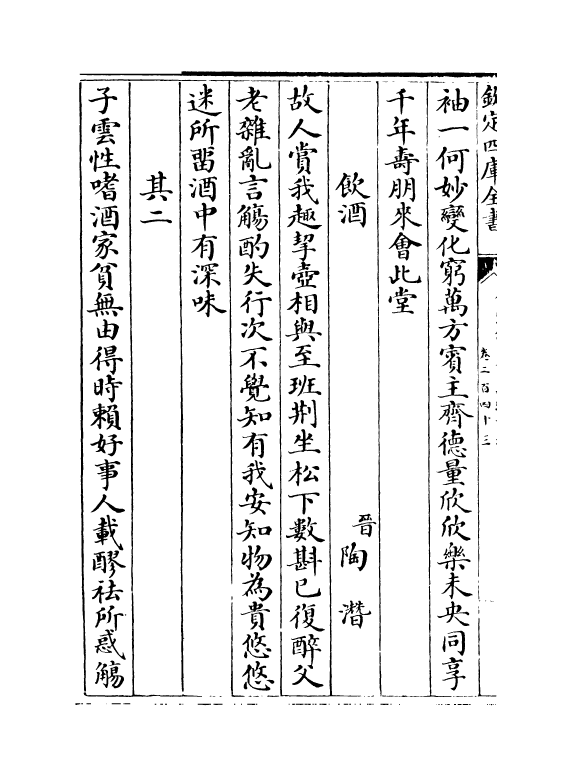 欽定四庫全書
卷二百四十三
袖一何妙變化窮萬方賓主齊德量欣欣樂未央同享
千年壽朋來會此堂
飲酒 晉陶潛
故人賞我趣挈壺相與至班荆坐松下數斟已復醉父
老雜亂言觴酌失行次不覺知有我安知物為貴悠悠
迷所留酒中有深味
其二
子雲性嗜酒家貧無由得時賴好事人載醪祛所惑觴